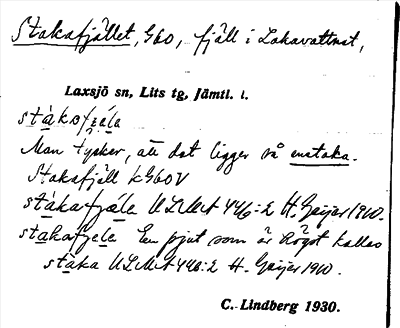 Stakafjället, G60, fjäll i Lakavattnet,
Laxsjö sn, Lits tg, Jämtl. l.
stàkafjela
Man tycker, att det ligger så enstaka.
Stakafjäll kG60V
stàkafjæla ULMA 446:2 H. Geijer 1910.
stakafjela En pjut som är högst kallas
staka ULMA 446:2 H. Geijer 1910.
C. Lindberg 1930.